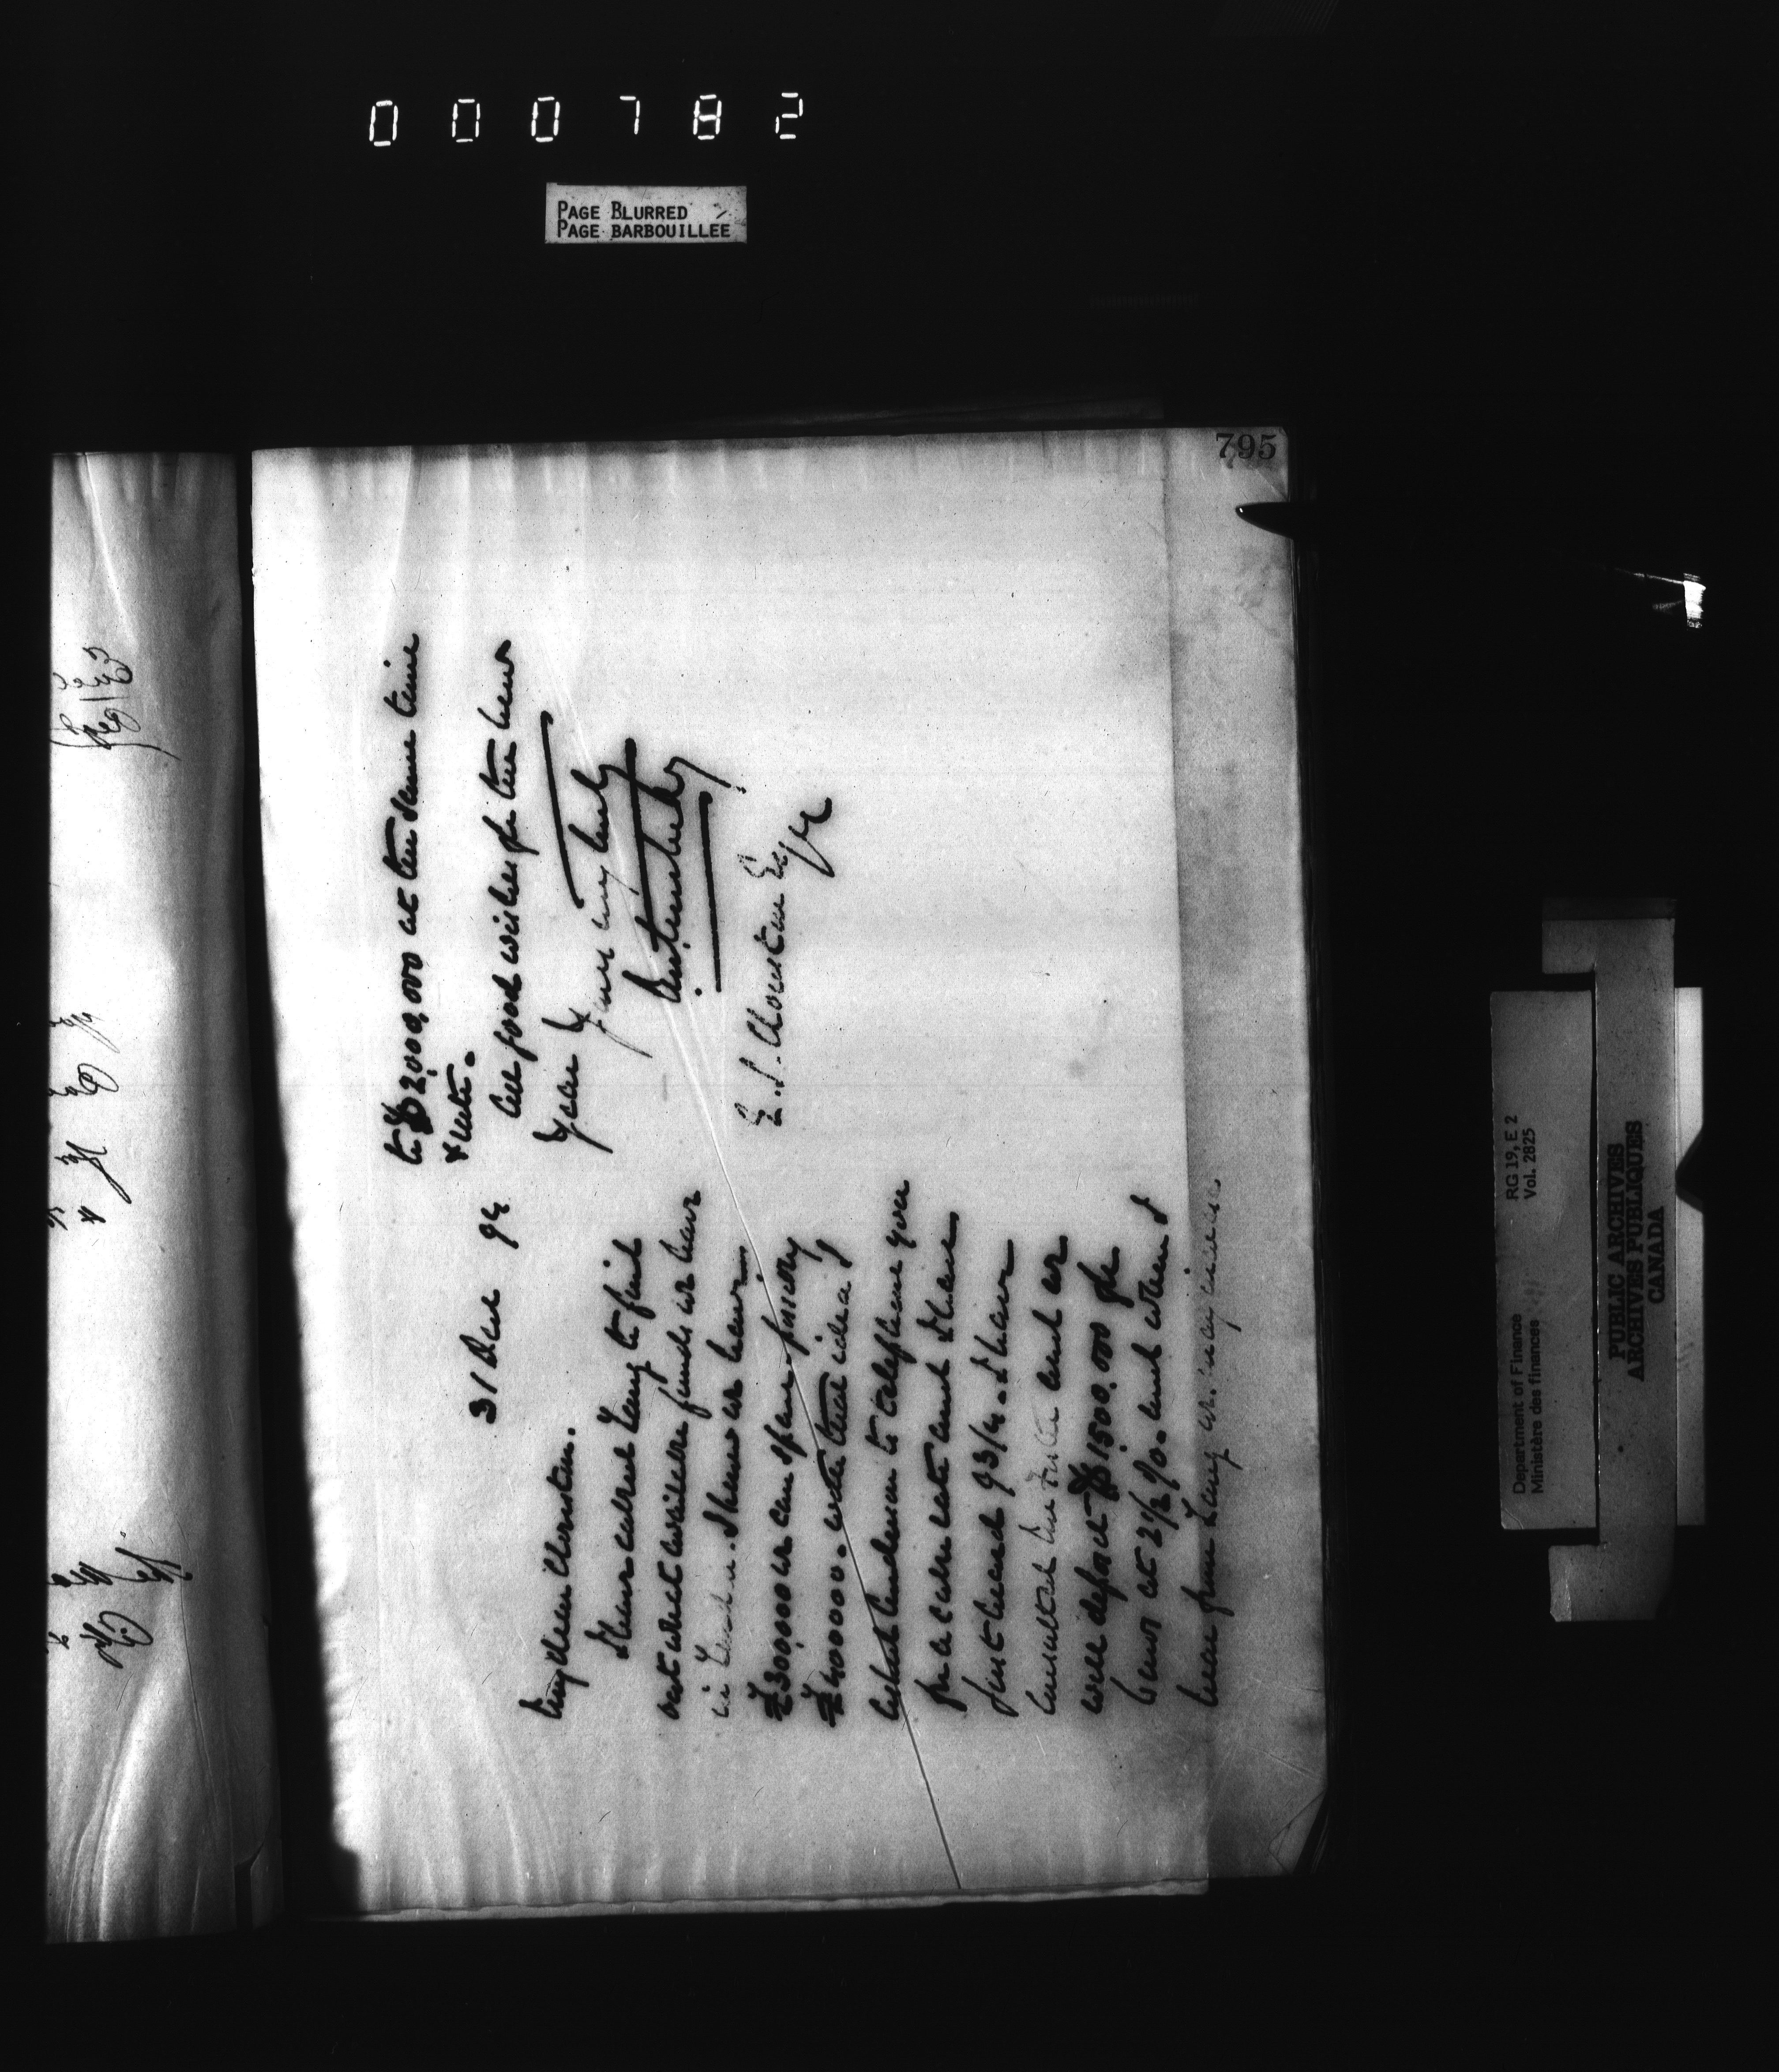 000782
PAGE BLURRED
PAGE BARBOUILLEE
795
31 Dec 94
My dear Clouston.
I have cabled Lang to find
out what available funds we have
in London. I know we have
£300000 we can spare
£400000. with that idea I
asked Anderson to telephone you
for a cable rate and I have
just heard 9 3/4. I have
consulted Mr Foster and we
will deposit $1500.000 for
hours at 2 1/2 %. and when I
hear from Lang we may increase
to $2,000,000 at the same time
& rate.
All good wishes for the new
Year
Yours very truly
E. S. Clouston Esqre
Department of Finance
Ministère des finances
RG 19, E 2
Vol. 2825
PUBLIC ARCHIVES
ARCHIVES PUBLIQUES
CANADA